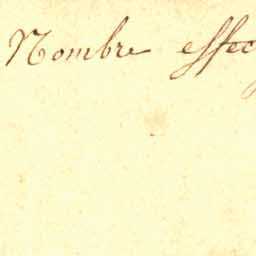 Nombre effec